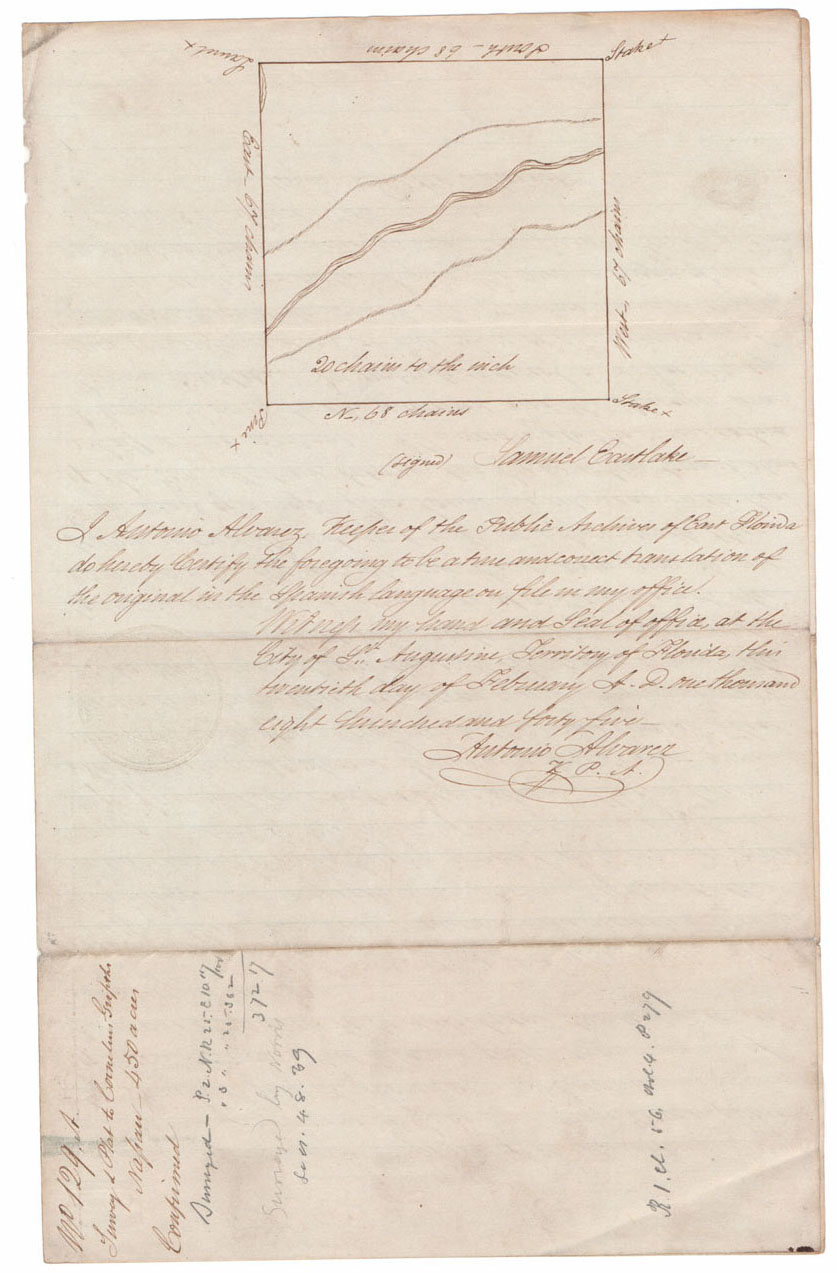 South - 68 chains
Laurel x
Stake x
East - 67 chains
West - 67 chains
20 chains to the inch
Pine x
N - 68 chains
Stake x
(signed) Samuel Eastlake -
I Antonio Alvarez, Keeper of the Public Archives of East Florida
do hereby Certify the foregoing to be a true and correct translation of
the original in the Spanish language on file in my office.
Witness my hand and Seal of office, at the
City of St. Augustine, Territory of Florida, this
twentieth day of February A. D. one thousand
eight hundred and forty five -
Antonio Alvarez
K. P. A.
No 129
Survey & Plat to Cornelius Griffith
Nassau - 450 acres
Confirmed
Surveyed - 2 N. R 25. E
" 3 " "
372
Surveyed by Norris
Secn. 48. 39
R. 1. cl. 56. vol 4. P 279